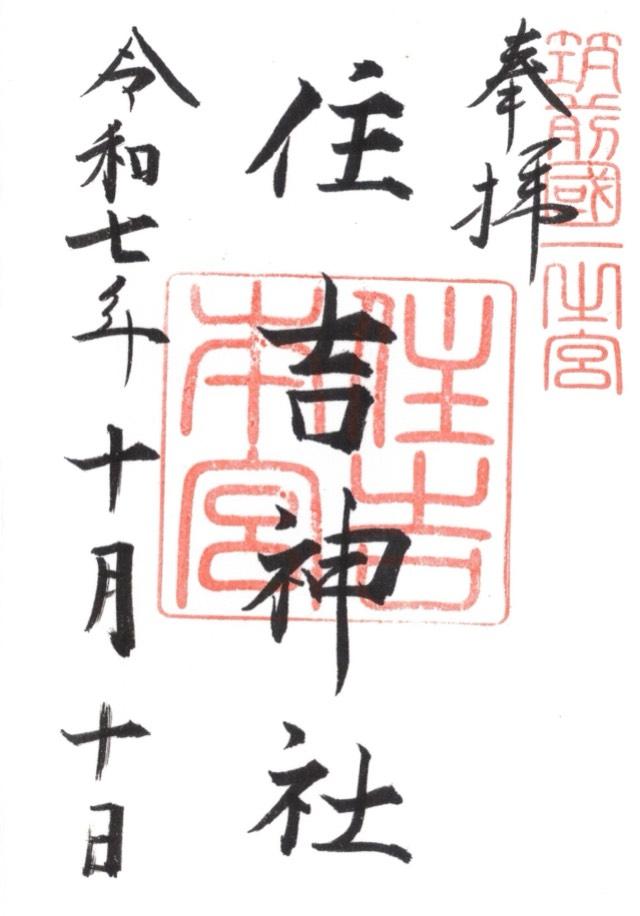 筑前國一之宮
奉拝
住吉神社
住吉本宮
令和七年十月十日